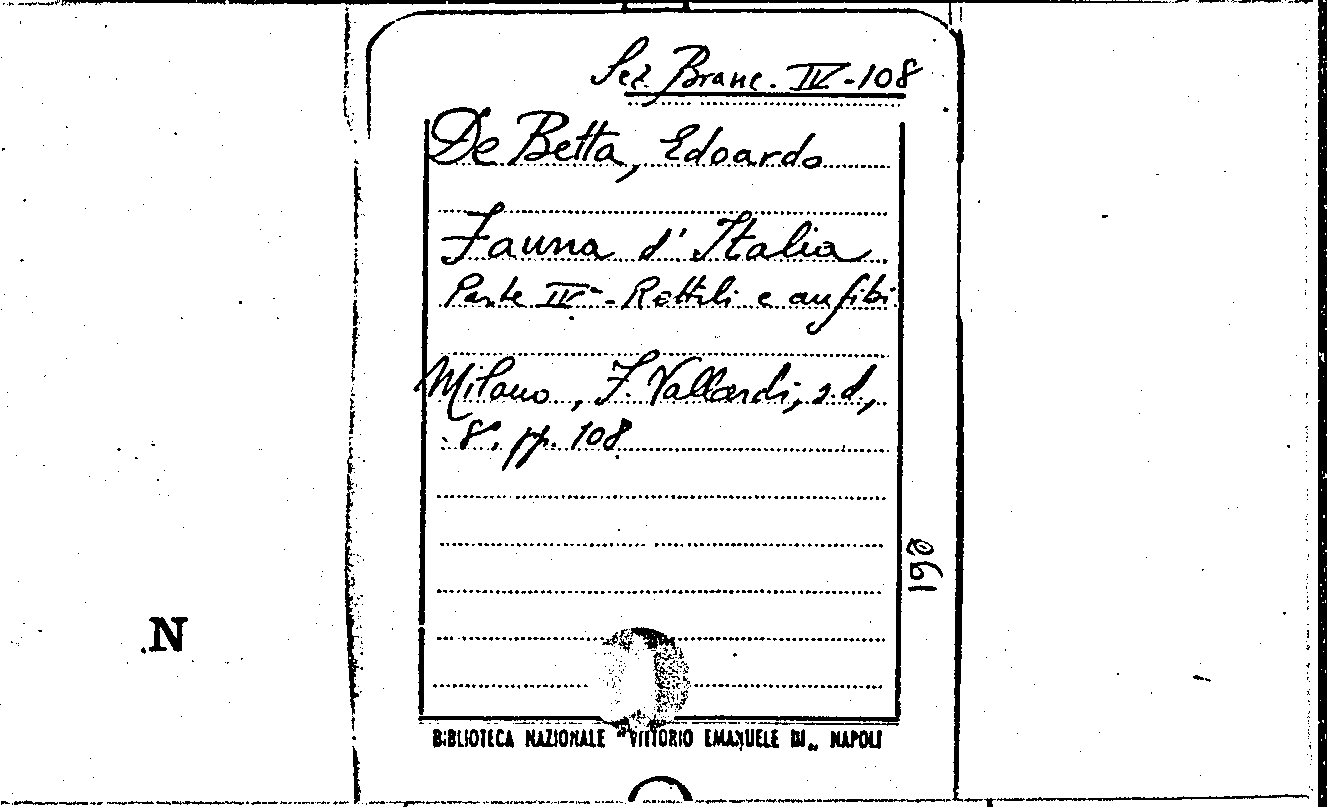 Sez. Branc. IV-108
De Betta, Edoardo
Fauna d'Italia
Parte IVª - Rettili e anfibi
Milano, F. Vallardi, s.d.,
8°. pp. 108
N
BIBLIOTECA NAZIONALE "VITTORIO EMANUELE III„ NAPOLI